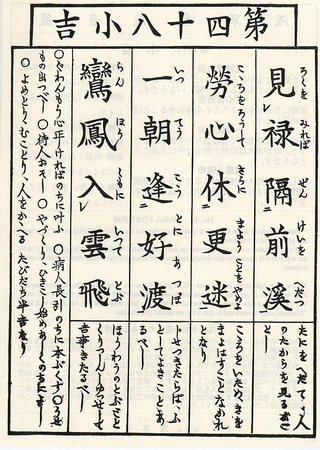 第四十八小吉
見禄隔前溪
ろくを みれば ぜん けいを へだつ
たにをへだてゝ人
のたからを見るおご
とし
勞心休更迷
こゝろをろうして さらに まよう ことをやめよ
こゝろをいためきを
まよはすことなかれ
となり
一朝逢好渡
いつ てう こう とに あつぼ
として よきことあ
るべし
鸞鳳入雲飛
らん ほう ともに いつて とぶ
ほうわうのとぶごと
くりつしんしゆつせして
吉事きたるべし
○ぐわんもう心正ければのちに叶ふ ○病人長引のちに本ぷくす ○うせ
もの出づべし ○待人おそし ○やづくり、ひきこし
○よめとり、むことり、人をかゝへる たびだち 半吉なり